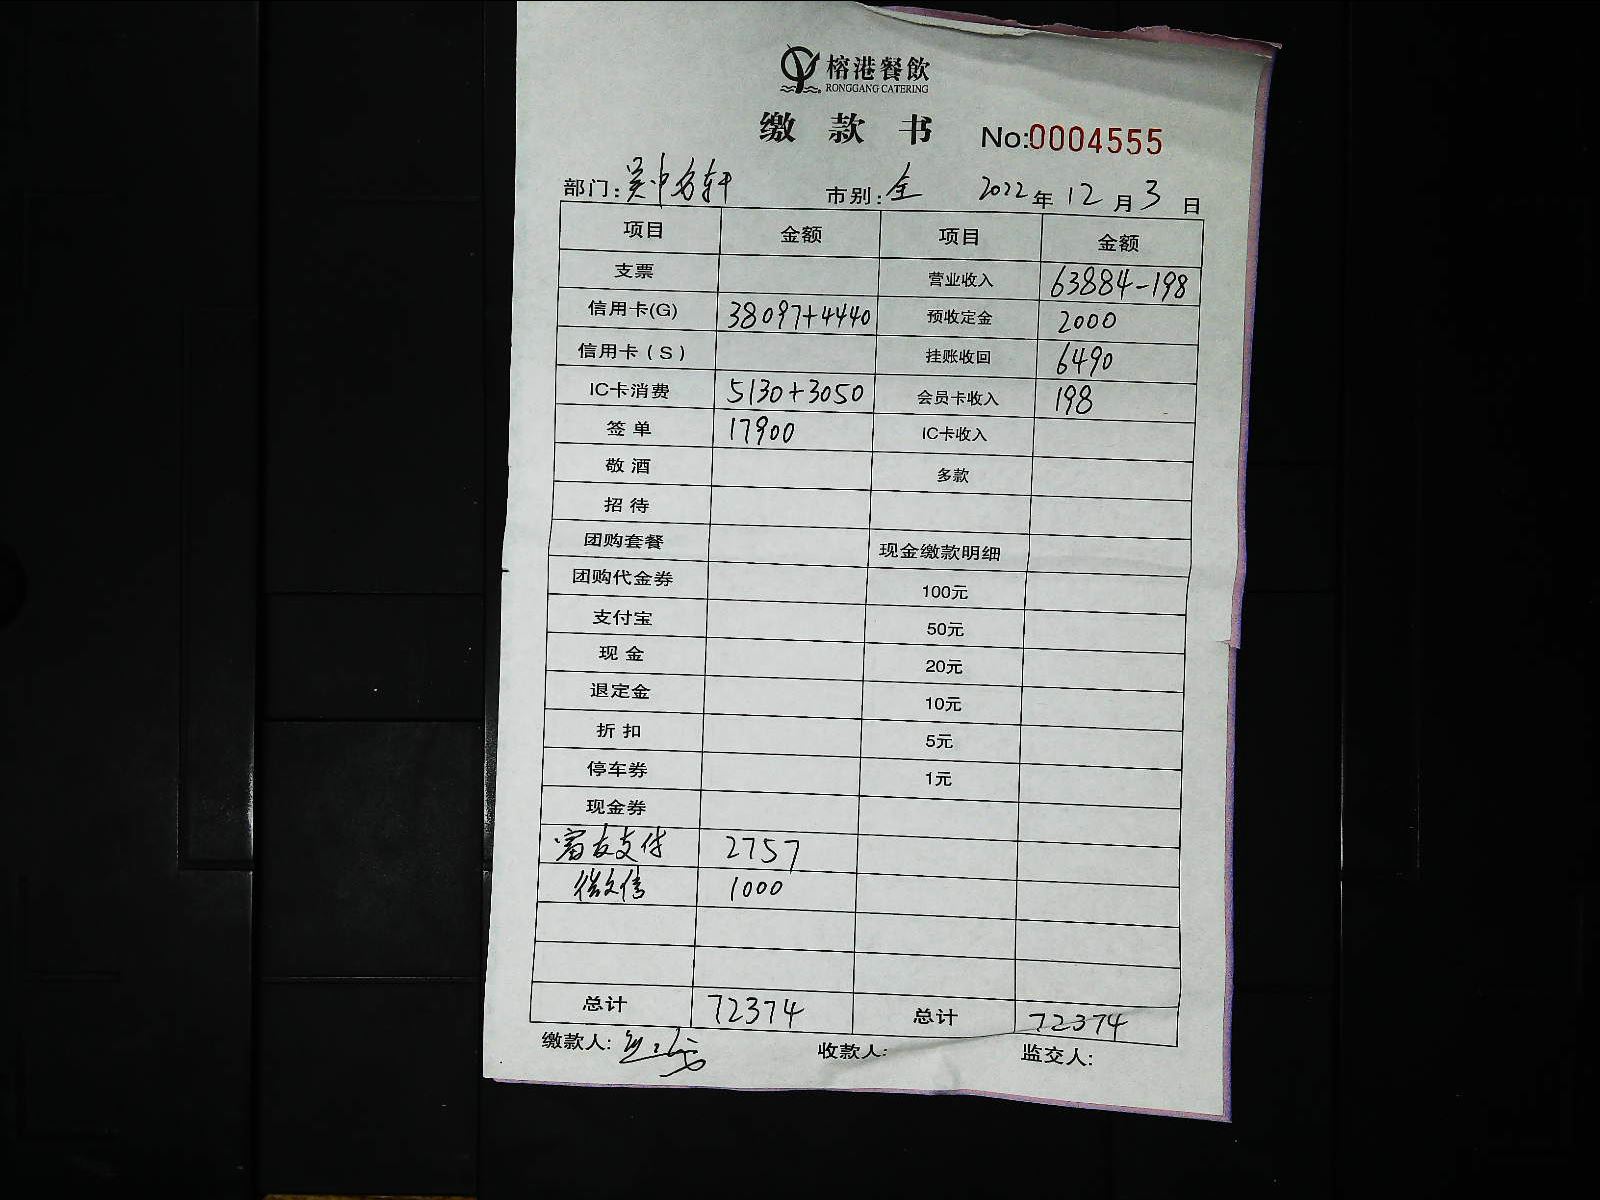 榕港餐飲
RONGGANG CATERING
缴款书 No:0004555
部门:吴中名轩 市别:全 2022年12月3日
项目 金额 项目 金额
支票 营业收入 63884-198
信用卡(G) 38097+4440 预收定金 2000
信用卡(S) 挂账收回 6490
IC卡消费 5130+3050 会员卡收入 198
签单 17900 IC卡收入
敬酒 多款
招待
团购套餐 现金缴款明细
团购代金券 100元
支付宝 50元
现金 20元
退定金 10元
折扣 5元
停车券 1元
现金券
富友支付 2757
微信 1000
总计 72374 总计 72374
缴款人: 收款人: 监交人: